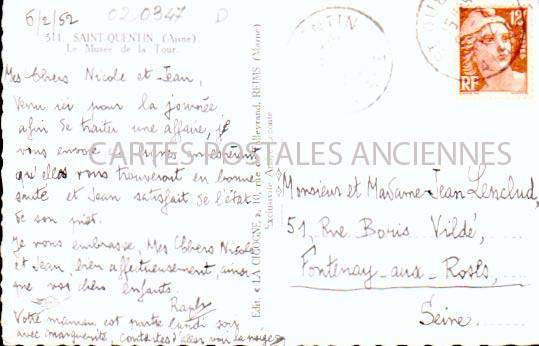 6/2/52
020347 D
511. SAINT-QUENTIN (Aisne)
Le Musée de la Tour.
Mes Chers Nicole et Jean,
Venu ici pour la journée
afin de traiter une affaire, je
vous envoie ces lignes en espérant
qu'elles vous trouveront en bonne
santé et Jean satisfait de l'état
de son pied.
Je vous embrasse, Mes Chers Nicole
et Jean, bien affectueusement, ainsi
que vos chers enfants.
Votre maman est partie lundi soir
avec marguerite, contentes d'aller voir la neige
Edit. « LA CIGOGNE », 10, rue de Talleyrand, REIMS (Marne)
QUENTIN
12F
RF
CARTES POSTALES ANCIENNES
Monsieur et Madame Jean Lenclud,
51, Rue Boris Vildé,
Fontenay-aux-Roses,
Seine.